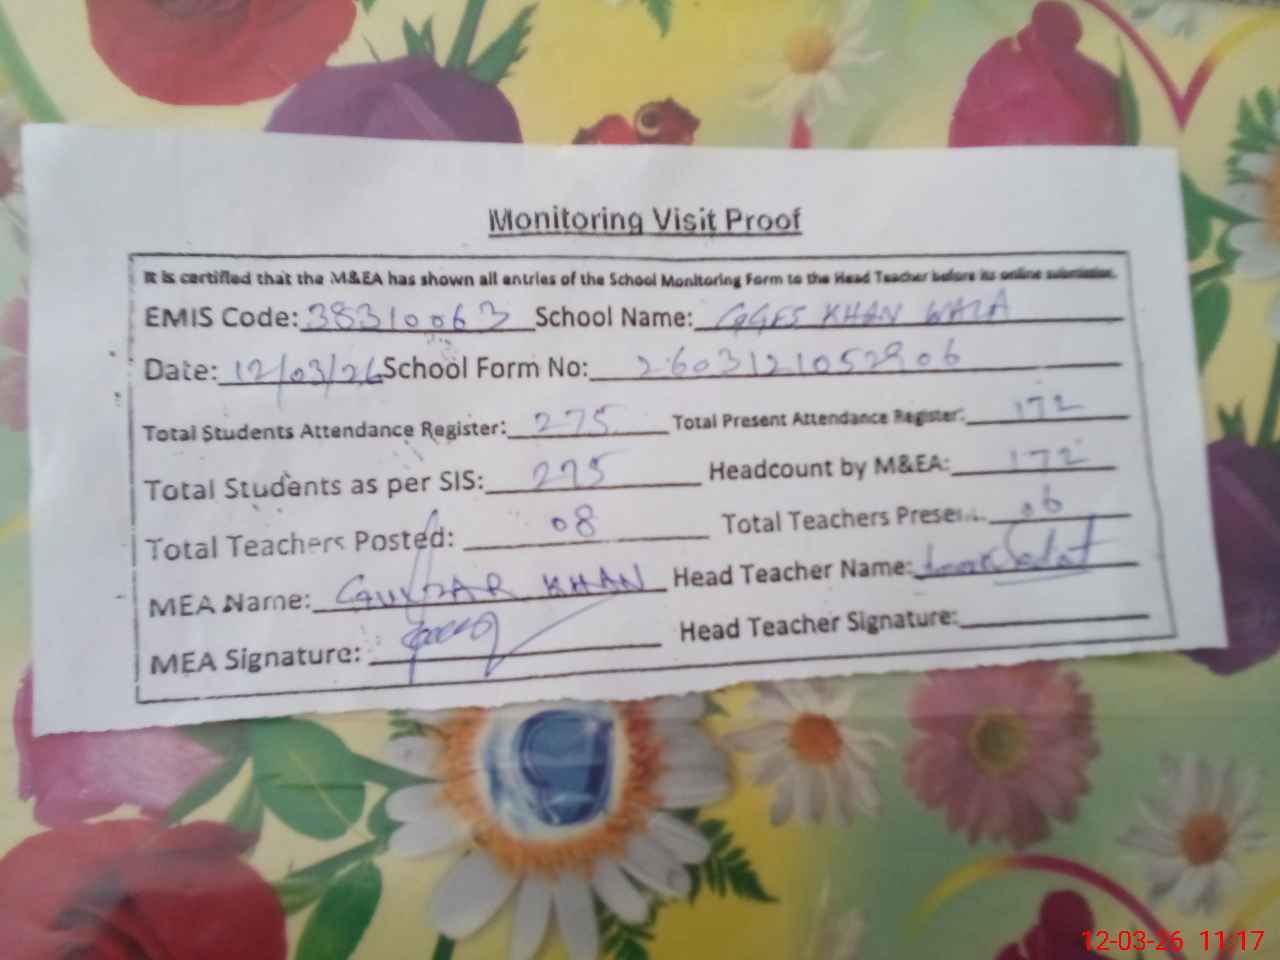 Monitoring Visit Proof
It is certified that the M&EA has shown all entries of the School Monitoring Form to the Head Teacher before its online submission.
EMIS Code: 38310063 School Name: GGES KHAN WALA
Date: 12/03/26 School Form No: 2603121052906
Total Students Attendance Register: 275 Total Present Attendance Register: 172
Total Students as per SIS: 275 Headcount by M&EA: 172
Total Teachers Posted: 08 Total Teachers Present: 06
MEA Name: GULZAR KHAN Head Teacher Name:
MEA Signature: Head Teacher Signature:
12-03-26 11:17